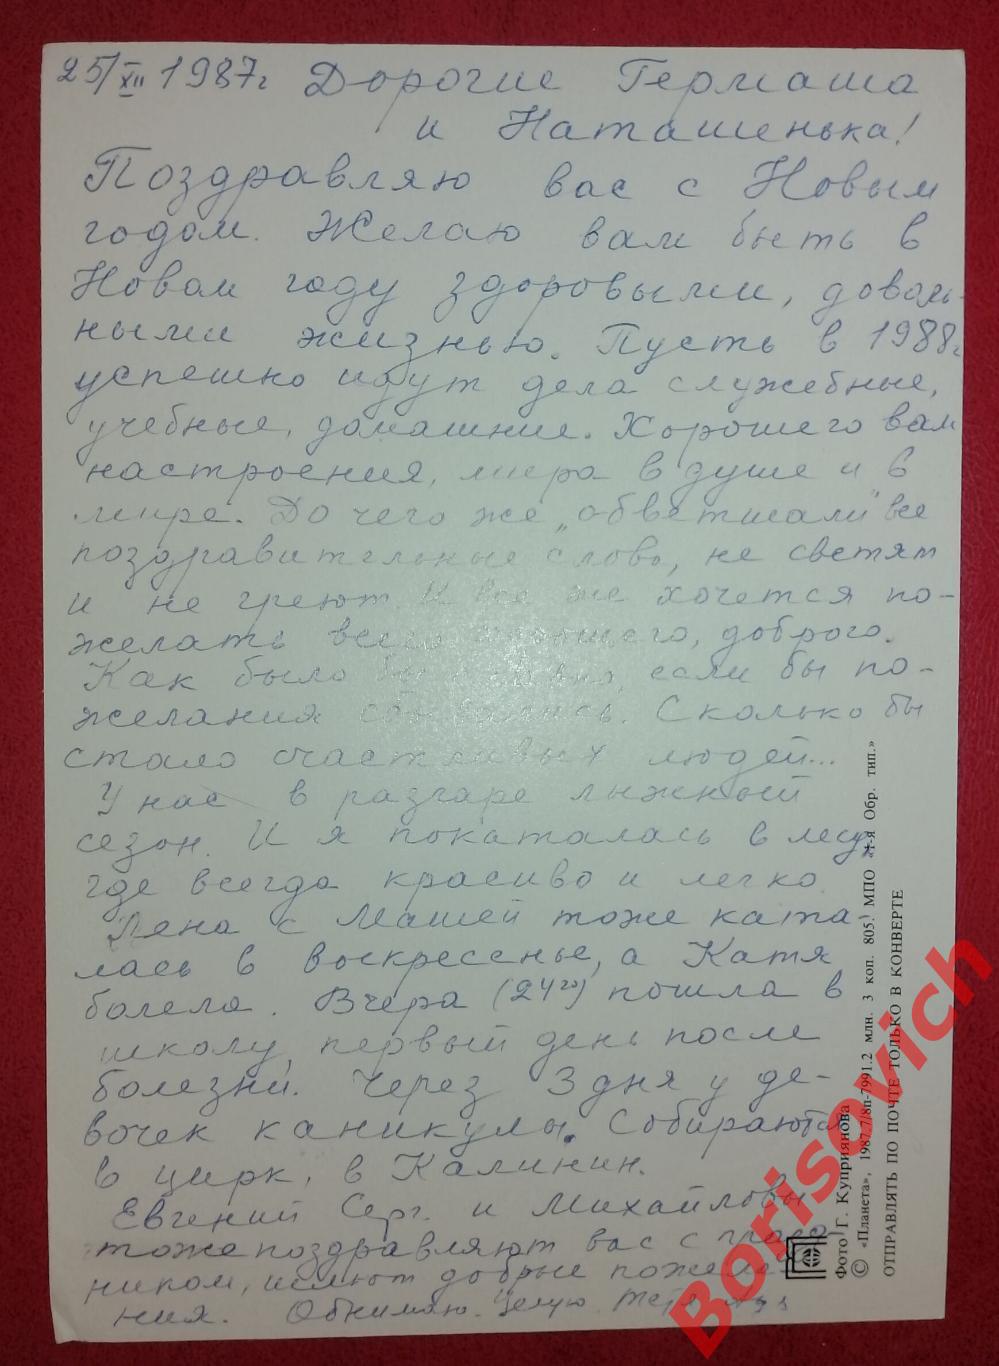 25/XII 1987г Дорогие Гермаша
и Наташенька!
Поздравляю вас с Новым
годом. Желаю вам быть в
Новом году здоровыми, доволь-
ными жизнью. Пусть в 1988г
успешно идут дела служебные,
учебные, домашние. Хорошего вам
настроения, мира в душе и в
мире. До чего же „обветшали" все
поздравительные слова, не светят
и не греют. И все же хочется по-
желать всего хорошего, доброго.
Как было бы если бы по-
желания сбывались. Сколько бы
стало счастливых людей...
У нас в разгаре лыжный
сезон. И я покаталась в лесу,
где всегда красиво и легко.
Лена с Машей тоже ката-
лась в воскресенье, а Катя
болела. Вчера (24го) пошла в
школу, первый день после
болезни. Через 3 дня у де-
вочек каникулы. Собираются
в цирк, в Калинин.
Евгений Серг. и Михайловы
тоже поздравляют вас с празд-
ником, шлют добрые пожела-
ния. Обнимаю. Целую.
Фото Г. Куприянова
© «Планета», 1987.7/8п-7991.2 млн. 3 коп. 805. МПО «1-я Обр. тип.»
ОТПРАВЛЯТЬ ПО ПОЧТЕ ТОЛЬКО В КОНВЕРТЕ
Borisovich